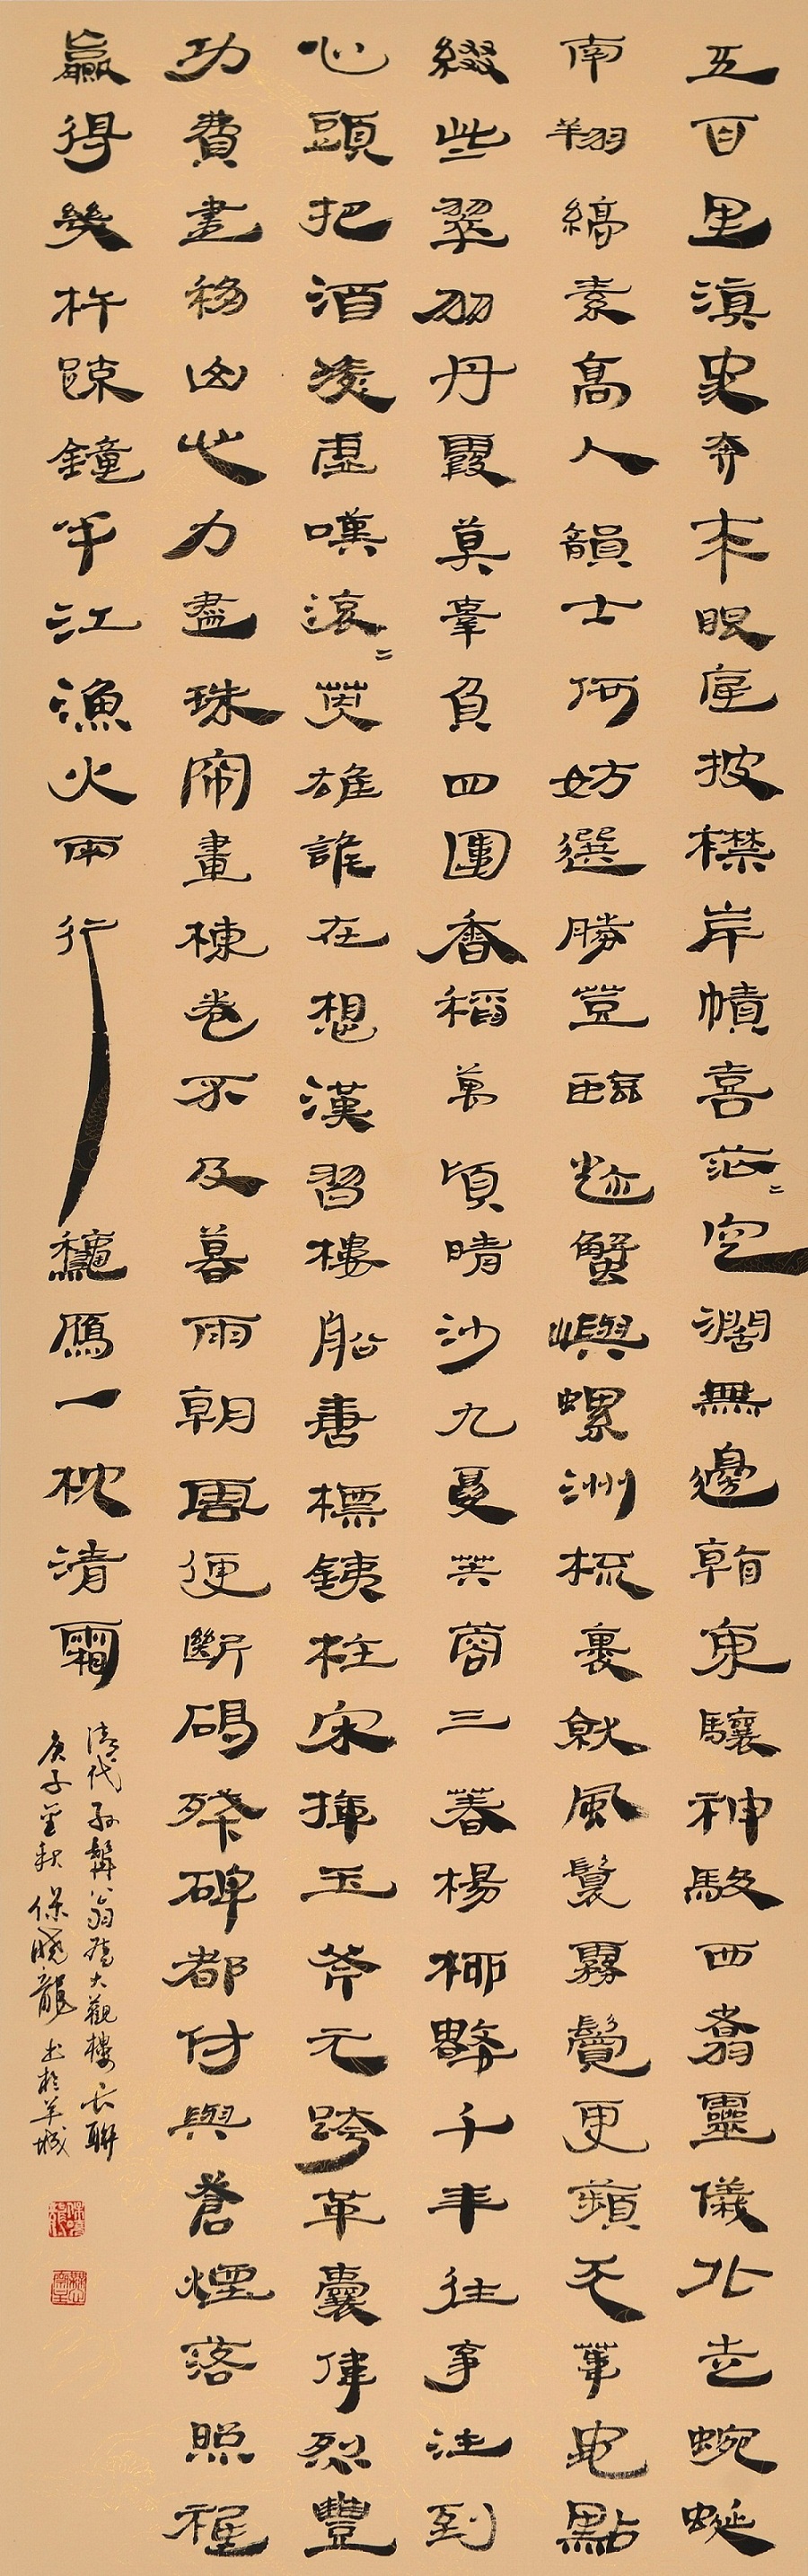 五百里滇池奔来眼底披襟岸幘喜茫〻空闊無邊看東驤神駿西翥靈儀北走蜿蜒
南翔縞素高人韻士何妨選勝登臨趁蟹嶼螺洲梳裹就風鬟霧鬢更蘋天葦地點
綴些翠羽丹霞莫辜負四圍香稻萬頃晴沙九夏芙蓉三春楊柳數千年往事注到
心頭把酒凌虛嘆滾〻英雄誰在想漢習樓船唐標鐵柱宋揮玉斧元跨革囊偉烈豐
功費盡移山心力盡珠簾畫棟卷不及暮雨朝雲便斷碣殘碑都付與蒼煙落照衹
贏得幾杵疎鐘半江漁火兩行穐鴈一枕清霜
清代孫髯翁題大觀樓長聯
庚子金秋保曉龍書於羊城